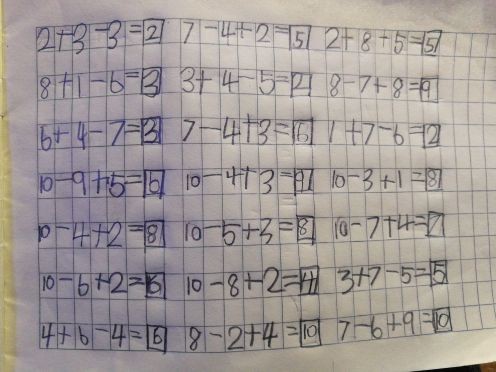 2+3-3=2 7-4+2=5 2+8+5=5
8+1-6=3 3+4-5=2 8-7+8=9
6+4-7=3 7-4+3=6 1+7-6=2
10-9+5=6 10-4+3=9 10-3+1=8
10-4+2=8 10-5+3=8 10-7+4=7
10-6+2=6 10-8+2=4 3+7-5=5
4+6-4=6 8-2+4=10 7-6+9=10